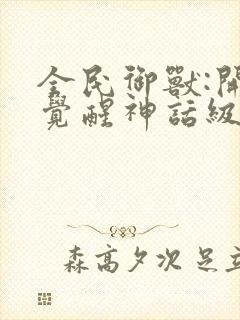 全民御獸:開
覺醒神話級
森高夕次 足立